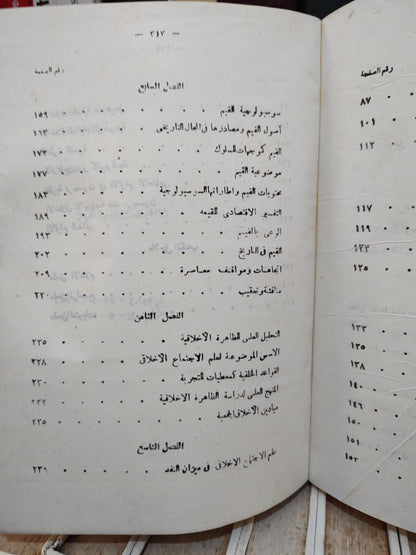 — ٣١٣ —
رقم الصفحة
الفصل السابع
سوسيولوجية القيم ١٥٩
أصول القيم ومصادرها فى المجال التاريخى ١٦٣
القيم كموجهات للسلوك ١٧٣
موضوعية القيم ١٧٧
محتويات القيم واطاراتها السوسيولوجية ١٨٣
التفسير الاقتصادى للقيمه ١٨٩
الوعى بالقيم ١٩٣
القيم فى التاريخ ٢٠٢
اتجاهات ومواقف معاصرة ٢٠٩
مناقشة وتعقيب ٢٢٠
الفصل الثامن
التحليل العلمى للظاهرة الأخلاقية ٢٢٥
الاسس الموضوعة لعلم الاجتماع الأخلاق ٢٢٨
القواعد الخلقية كمعطيات للتجربة ٢٣٠
المنهج العلمى لدراسة الظاهرة الاخلاقية ٢٣٢
ميادين الأخلاق الجمعية ٢٣٥
الفصل التاسع
علم الاجتماع الاخلاق فى ميزان النقد ٢٣٩
رقم الصفحة
٨٧
١٠١
١١٢
١١٧
١١٩
١٢٣
١٢٥
١٣٣
١٣٥
١٣٨
١٤٠
١٤٦
١٥٠
١٥١
١٥٢